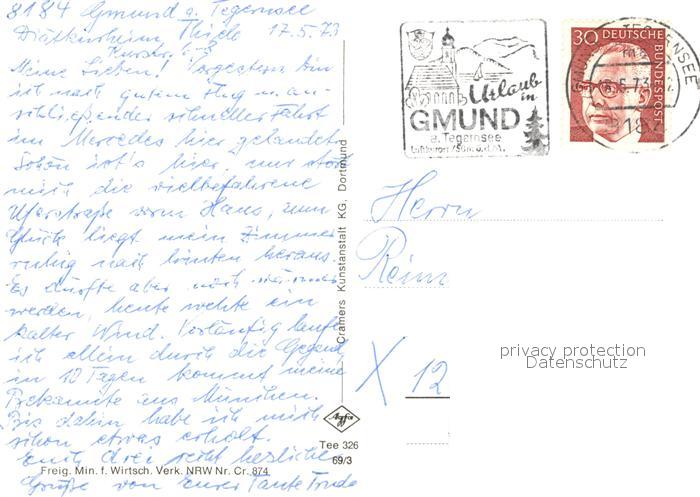 8184 Gmund a. Tegernsee
Diätkurheim Thiele 17.5.73
Kurstr.
Meine Lieben! Vorgestern bin
ich nach gutem Flug u. an-
schließender schneller Fahrt
im Mercedes hier gelandet.
Schön ist's hier, nur stört
mich die vielbefahrene
Uferstraße vorm Haus, zum
Glück liegt mein Zimmer
ruhig nach hinten heraus.
Es dürfte aber noch wärmer
werden, heute wehte ein
kalter Wind. Vorläufig laufe
ich allein durch die Gegend,
in 10 Tagen kommt meine
Bekannte aus München.
Bis dahin habe ich mich
schon etwas erholt.
Euch drei recht herzliche
Grüße von Eurer Tante Trude
Freig. Min. f. Wirtsch. Verk. NRW Nr. Cr. 874
Cramers Kunstanstalt KG. Dortmund
Agfa
Tee 326
69/3
Urlaub
in
GMUND
a. Tegernsee
30 DEUTSCHE BUNDESPOST
TEGERNSEE
5.73
Herrn
X 12
privacy protection
Datenschutz